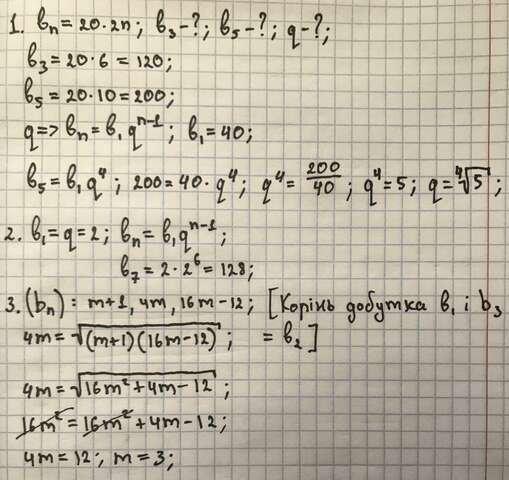 1. bₙ = 20·2n; b₃ - ?; b₅ - ?; q - ?;
b₃ = 20·6 = 120;
b₅ = 20·10 = 200;
q => bₙ = b₁qⁿ⁻¹; b₁ = 40;
b₅ = b₁q⁴; 200 = 40·q⁴; q⁴ = 200/40; q⁴ = 5; q = ⁴√5;
2. b₁ = q = 2; bₙ = b₁qⁿ⁻¹;
b₇ = 2·2⁶ = 128;
3. (bₙ): m+1, 4m, 16m-12; [Корінь добутка b₁ і b₃
4m = √(m+1)(16m-12); = b₂]
4m = √16m²+4m-12;
16m² = 16m²+4m-12;
4m = 12; m = 3;